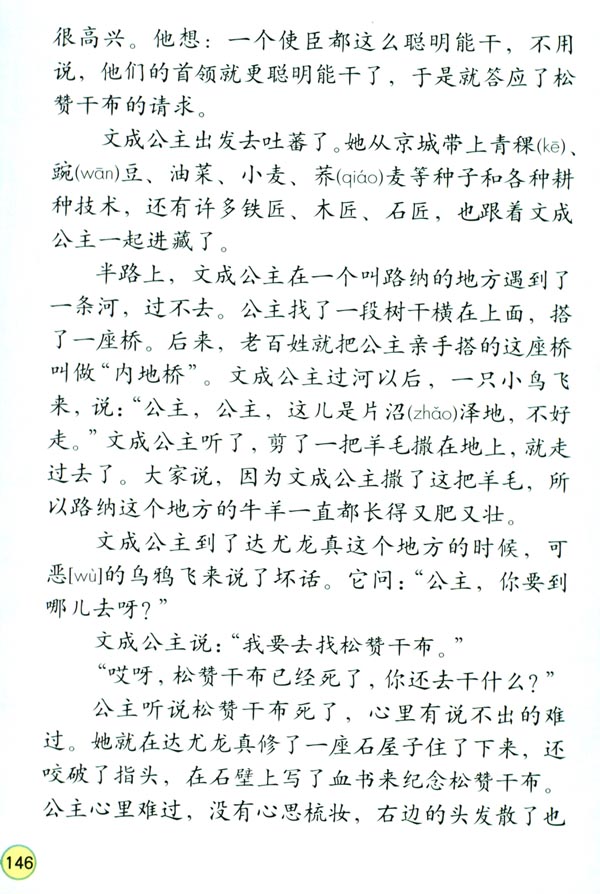 很高兴。他想：一个使臣都这么聪明能干，不用
说，他们的首领就更聪明能干了，于是就答应了松
赞干布的请求。
文成公主出发去吐蕃了。她从京城带上青稞(kē)、
豌(wān)豆、油菜、小麦、荞(qiáo)麦等种子和各种耕
种技术，还有许多铁匠、木匠、石匠，也跟着文成
公主一起进藏了。
半路上，文成公主在一个叫路纳的地方遇到了
一条河，过不去。公主找了一段树干横在上面，搭
了一座桥。后来，老百姓就把公主亲手搭的这座桥
叫做“内地桥”。文成公主过河以后，一只小鸟飞
来，说：“公主，公主，这儿是片沼(zhǎo)泽地，不好
走。”文成公主听了，剪了一把羊毛撒在地上，就走
过去了。大家说，因为文成公主撒了这把羊毛，所
以路纳这个地方的牛羊一直都长得又肥又壮。
文成公主到了达尤龙真这个地方的时候，可
恶[wù]的乌鸦飞来说了坏话。它问：“公主，你要到
哪儿去呀？”
文成公主说：“我要去找松赞干布。”
“哎呀，松赞干布已经死了，你还去干什么？”
公主听说松赞干布死了，心里有说不出的难
过。她就在达尤龙真修了一座石屋子住了下来，还
咬破了指头，在石壁上写了血书来纪念松赞干布。
公主心里难过，没有心思梳妆，右边的头发散了也
146